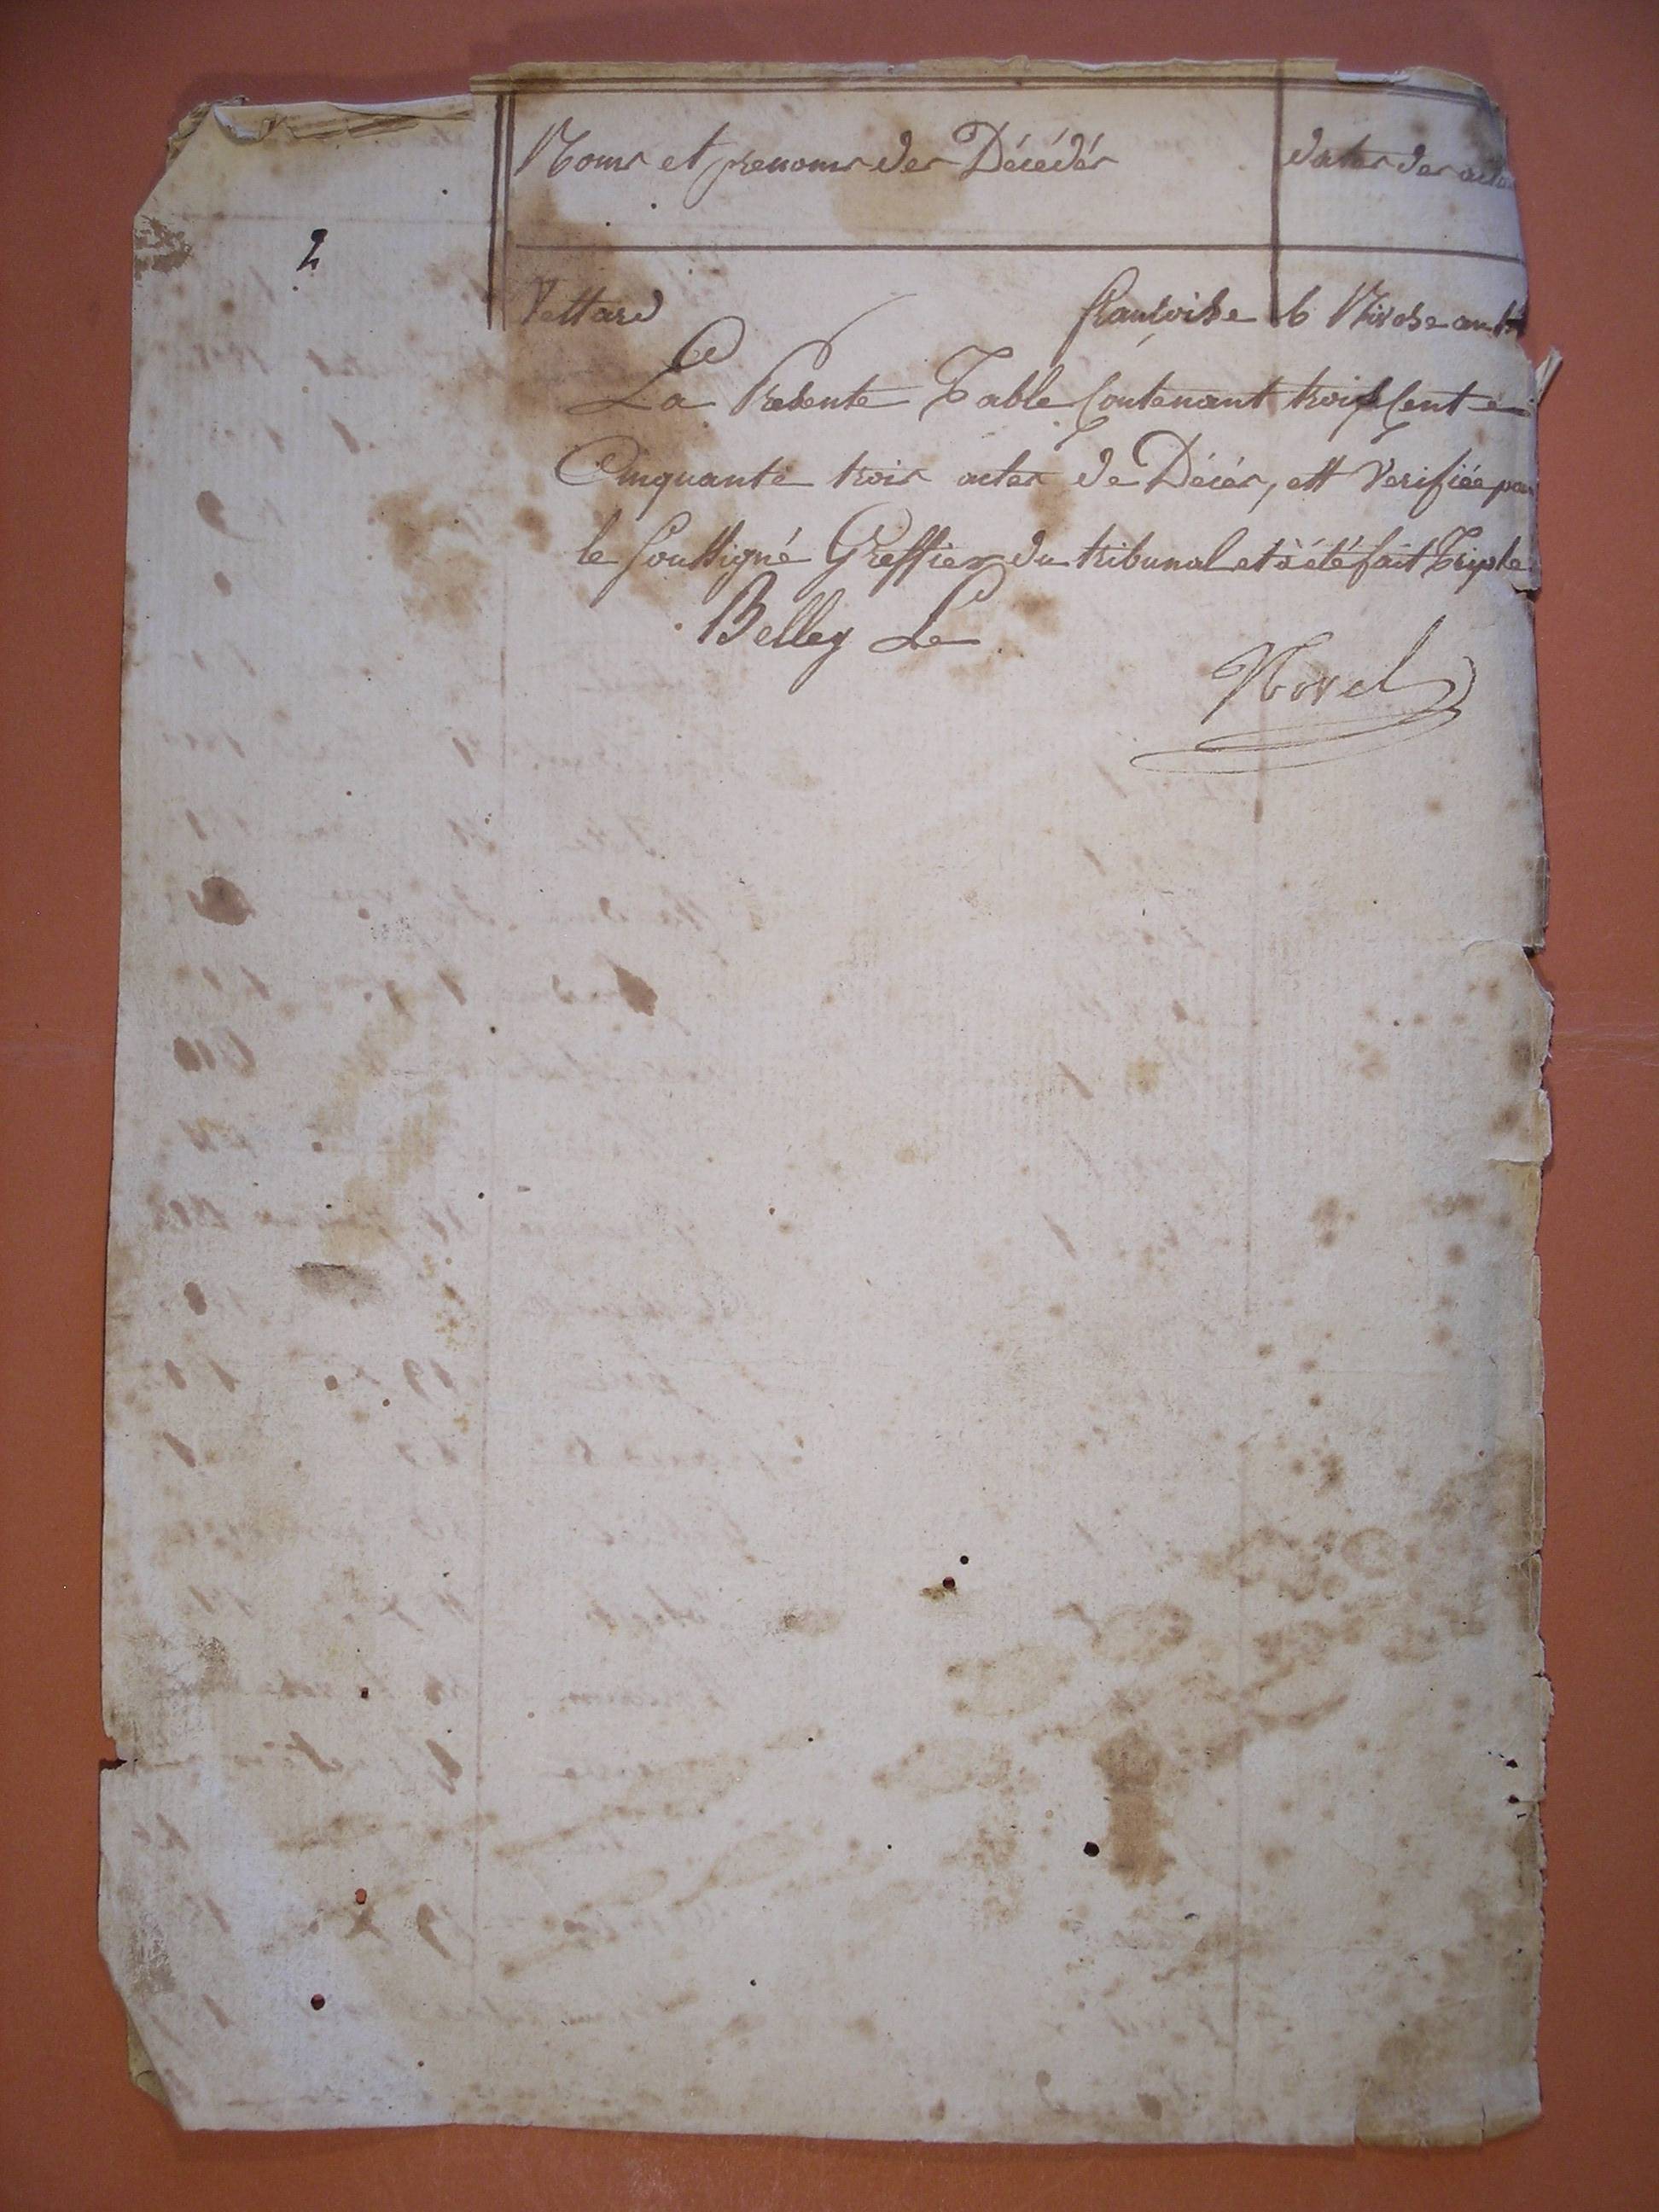 Noms et prenoms des Décédés dates des actes
2
Vettard françoise 6 Nivose an
La Presente Table Contenant trois Cent
Cinquante trois actes de Décés, est Verifiée par
le soussigné Greffier du tribunal et à été fait Triple
Belley Le
Novel